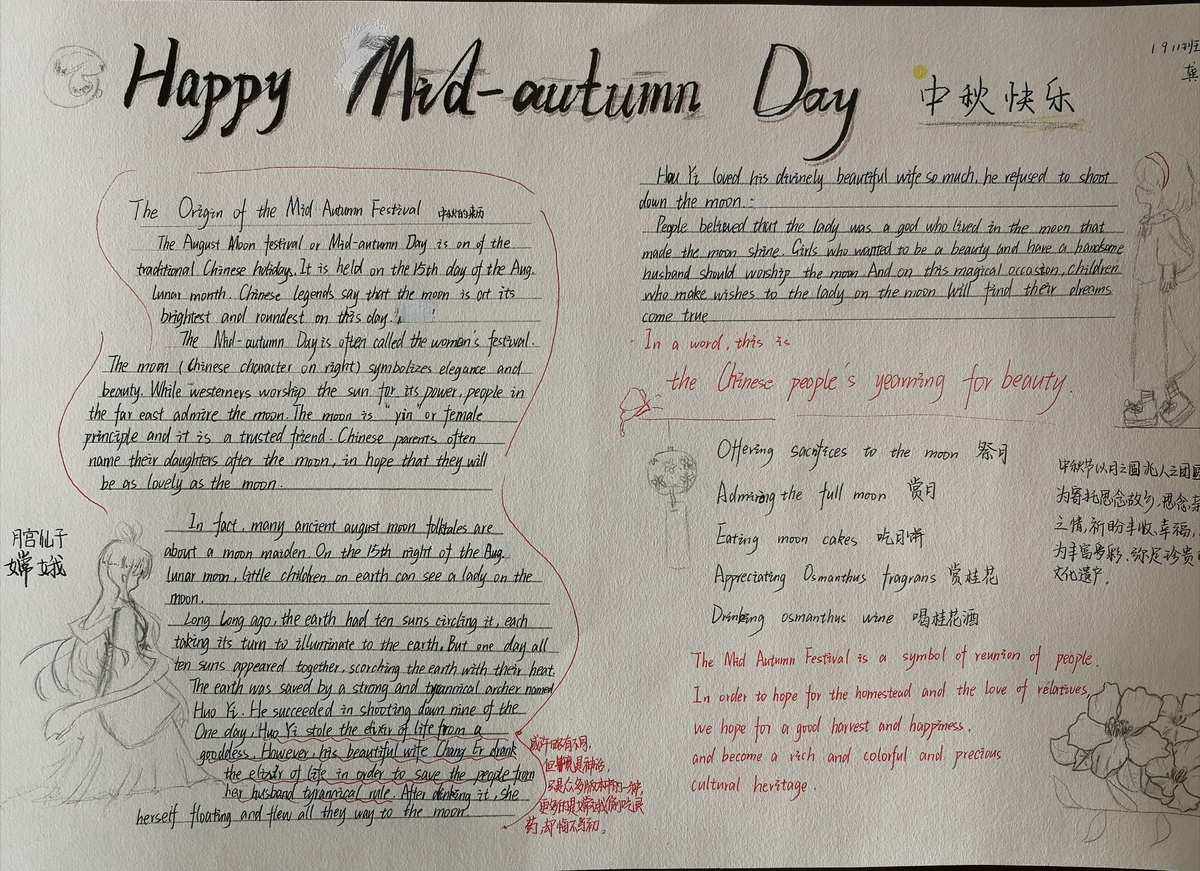 Happy Mid-autumn Day 中秋快乐
1911班
龚
The Origin of the Mid Autumn Festival 中秋的来历
The August Moon festival or Mid-autumn Day is on of the
traditional Chinese holiday. It is held on the 15th day of the Aug.
lunar month. Chinese legends say that the moon is at its
brightest and roundest on this day.
The Mid-autumn Day is often called the women's festival.
The moon (Chinese character on right) symbolizes elegance and
beauty. While westerners worship the sun for its power, people in
the far east admire the moon. The moon is "yin" or female
principle and it is a trusted friend. Chinese parents often
name their daughters after the moon, in hope that they will
be as lovely as the moon.
月宫仙子
嫦娥
In fact, many ancient august moon folktales are
about a moon maiden. On the 15th night of the Aug.
lunar moon, little children on earth can see a lady on the
moon.
Long Long ago, the earth had ten suns circling it, each
taking its turn to illuminate to the earth. But one day all
ten suns appeared together, scorching the earth with their heat.
The earth was saved by a strong and tyrannical archer named
Huo Yi. He succeeded in shooting down nine of the
One day, Huo Yi stole the elixir of life from a
gooddess. However, his beautiful wife Chang Er drank
the elixir of life in order to save the people from
her husband tyrannical rule. After drinking it, she
herself floating and flew all they way to the moon.
或许略有不同,
但都是神话,
只是众多版本中的一种,
药,却悔不当初。
Hou Yi loved his divinely beautiful wife so much, he refused to shoot
down the moon.
People believed that the lady was a god who lived in the moon that
made the moon shine. Girls who wanted to be a beauty and have a handsome
husband should worship the moon. And on this magical occasion, children
who make wishes to the lady on the moon will find their dreams
come true
In a word, this is
the Chinese people's yearning for beauty.
Offering sacrifices to the moon 祭月
Admiring the full moon 赏月
Eating moon cakes 吃月饼
Appreciating Osmanthus fragrans 赏桂花
Drinking osmanthus wine 喝桂花酒
中秋节以月之圆兆人之团圆
为寄托思念故乡,思念亲
之情,祈盼丰收、幸福,
为丰富多彩、弥足珍贵的
文化遗产。
The Mid Autumn Festival is a symbol of reunion of people.
In order to hope for the homestead and the love of relatives,
we hope for a good harvest and happiness.
and become a rich and colorful and precious
cultural heritage.